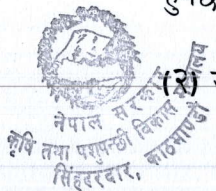 (२)
नेपाल सरकार
कृषि तथा पशुपन्छी विकास मन्त्रालय
सिंहदरबार, काठमाण्डौ